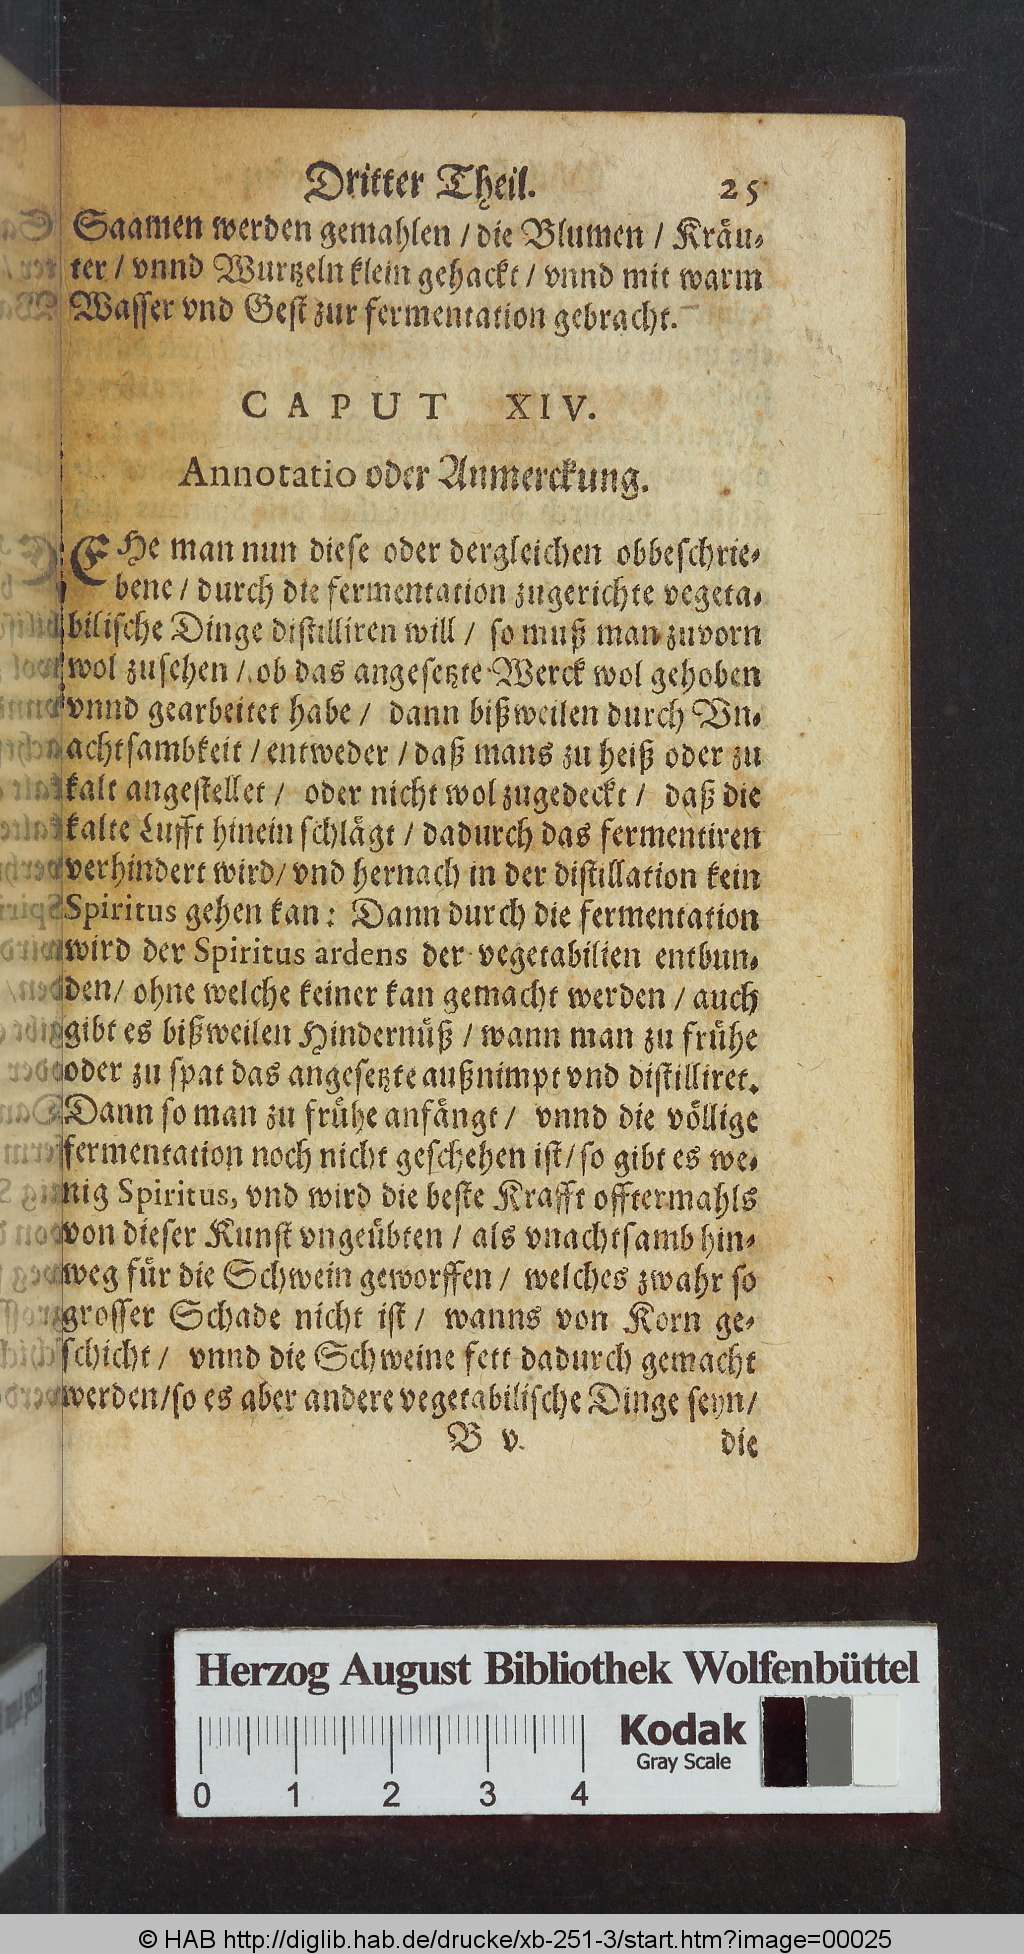 Dritter Theil. 25
Saamen werden gemahlen / die Blumen / Kräu-
ter / vnnd Wurtzeln klein gehackt / vnnd mit warm
Wasser vnd Gest zur fermentation gebracht.
CAPUT XIV.
Annotatio oder Anmerckung.
EHe man nun diese oder dergleichen obbeschrie-
bene / durch die fermentation zugerichte vegeta-
bilische Dinge distilliren will / so muß man zuvorn
wol zusehen / ob das angesetzte Werck wol gehoben
vnnd gearbeitet habe / dann bißweilen durch Vn-
achtsambkeit / entweder / daß mans zu heiß oder zu
kalt angestellet / oder nicht wol zugedeckt / daß die
kalte Lufft hinein schlågt / dadurch das fermentiren
verhindert wird / vnd hernach in der distillation kein
Spiritus gehen kan: Dann durch die fermentation
wird der Spiritus ardens der vegetabilien entbun-
den / ohne welche keiner kan gemacht werden / auch
gibt es bißweilen Hindernůß / wann man zu frůhe
oder zu spat das angesetzte außnimpt vnd distilliret.
Dann so man zu frůhe anfångt / vnnd die völlige
fermentation noch nicht geschehen ist / so gibt es we-
nig Spiritus, vnd wird die beste Krafft offtermahls
von dieser Kunst vngeübten / als vnachtsamb hin-
weg für die Schwein geworffen / welches zwahr so
grosser Schade nicht ist / wanns von Korn ge-
schicht / vnnd die Schweine fett dadurch gemacht
werden / so es aber andere vegetabilische Dinge seyn /
B v. die
Herzog August Bibliothek Wolfenbüttel
Kodak
Gray Scale
0 1 2 3 4
© HAB http://diglib.hab.de/drucke/xb-251-3/start.htm?image=00025